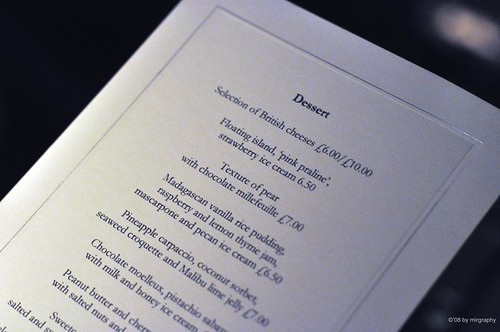 Dessert
Selection of British cheeses £6.00/£10.00
Floating island, 'pink praline',
strawberry ice cream 6.50
Texture of pear
with chocolate millefeuille £7.00
Madagascan vanilla rice pudding,
raspberry and lemon thyme jam,
mascarpone and pecan ice cream £6.50
Pineapple carpaccio, coconut sorbet,
seaweed croquette and Malibu lime jelly £7.00
Chocolate moelleux, pistachio
with milk and honey ice cream
Peanut butter and cherry
with salted nuts and
salted and
©'08 by mirgraphy